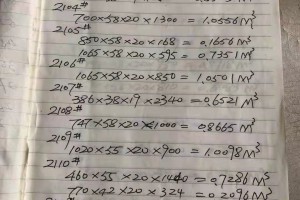 2104#
700×58×20×1300=1.0556M³
2105#
850×58×20×168=0.1656M³
1065×58×20×595=0.7351M³
2106#
1065×58×20×850=1.0501M³
2107#
386×38×19×2340=0.6521M³
2108#
747×58×20×1000=0.8665M³
2109#
1020×55×20×900=1.0098M³
2110#
460×55×20×1440=0.7286M³
770×42×20×324=0.2096M³